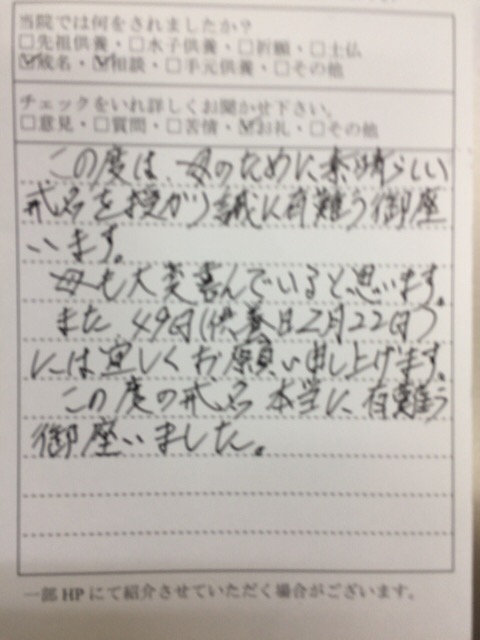 当院では何をされましたか？
□先祖供養・□水子供養・□祈願・□土仏
☑戒名・☑相談・□手元供養・□その他
チェックをいれ詳しくお聞かせ下さい。
□意見・□質問・□苦情・☑お礼・□その他
この度は、母のために素晴らしい
戒名を授かり誠に有難う御座
います。
母も大変喜んでいると思います。
また 49日(供養日2月22日)
には宜しくお願い申し上げます。
この度の戒名 本当に有難う
御座いました。
一部HPにて紹介させていただく場合がございます。